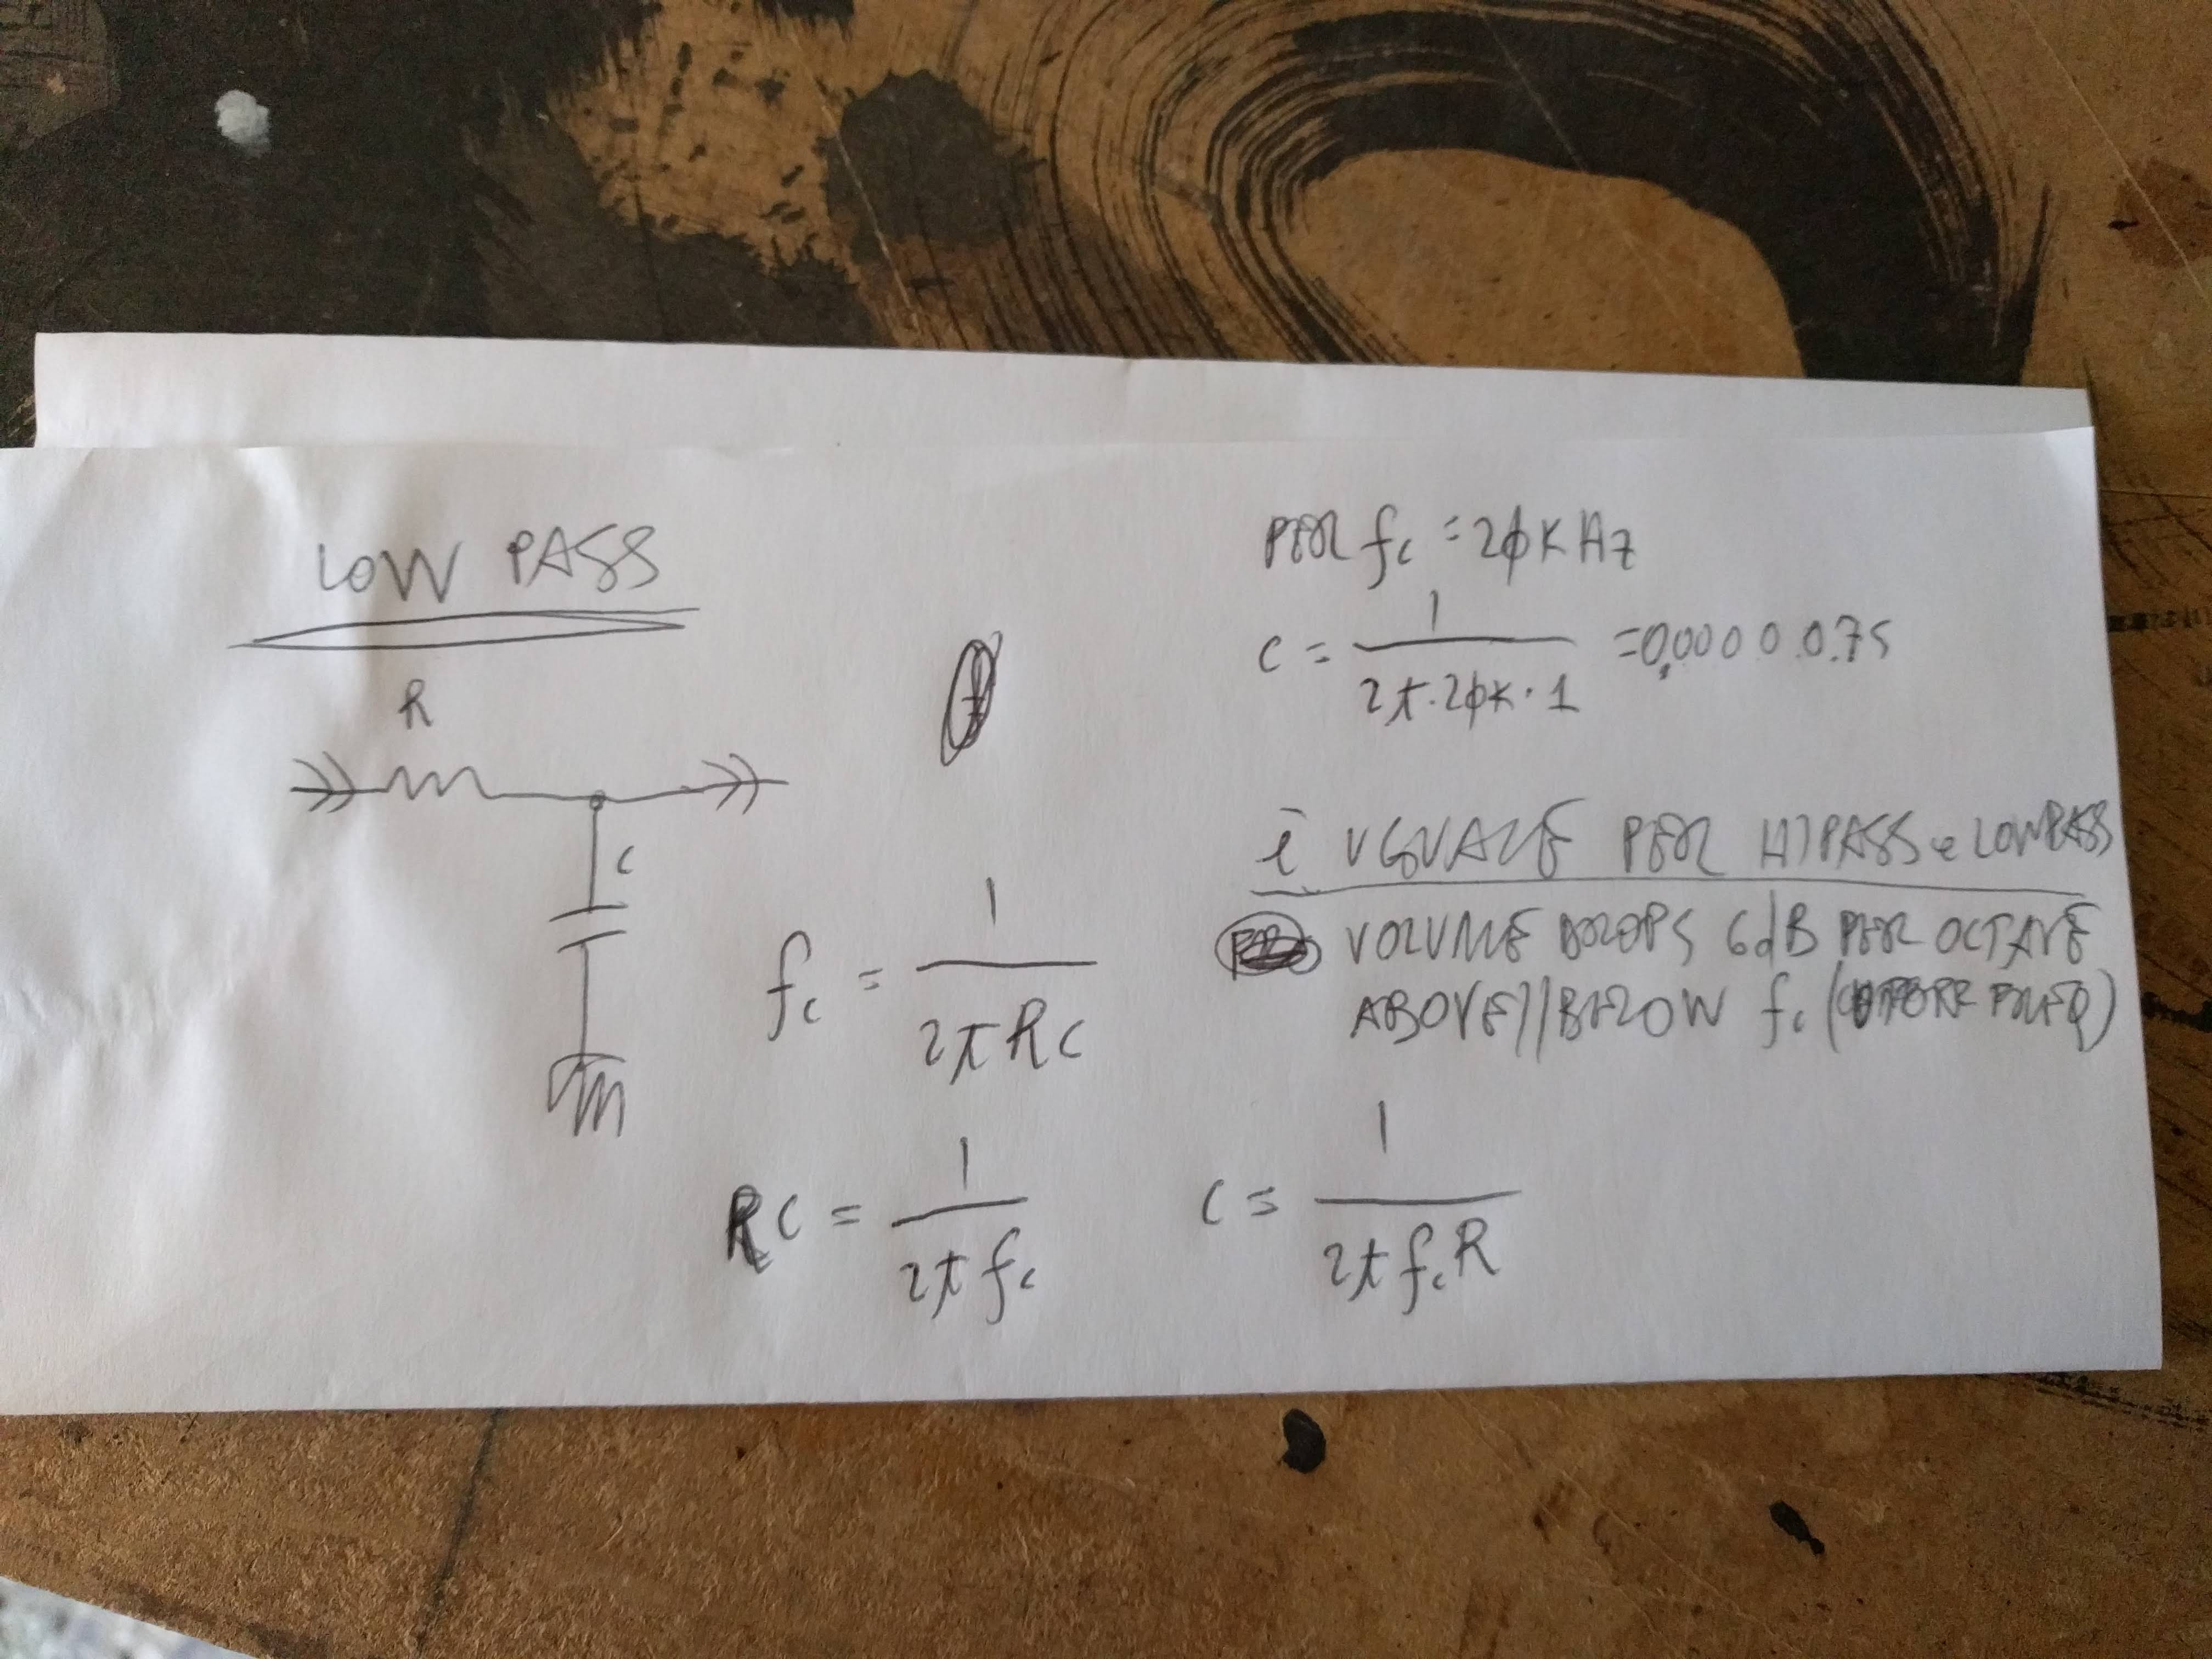 LOW PASS
R
C
fc = 1 / 2π RC
RC = 1 / 2π fc
PER fc = 2ϕKHz
C = 1 / 2π·2ϕK·1 = 0,00000.75
È UGUALE PER HIPASS e LOWPASS
VOLUME DROPS 6dB PER OCTAVE
ABOVE//BELOW fc ( FREQ)
C = 1 / 2π fc R